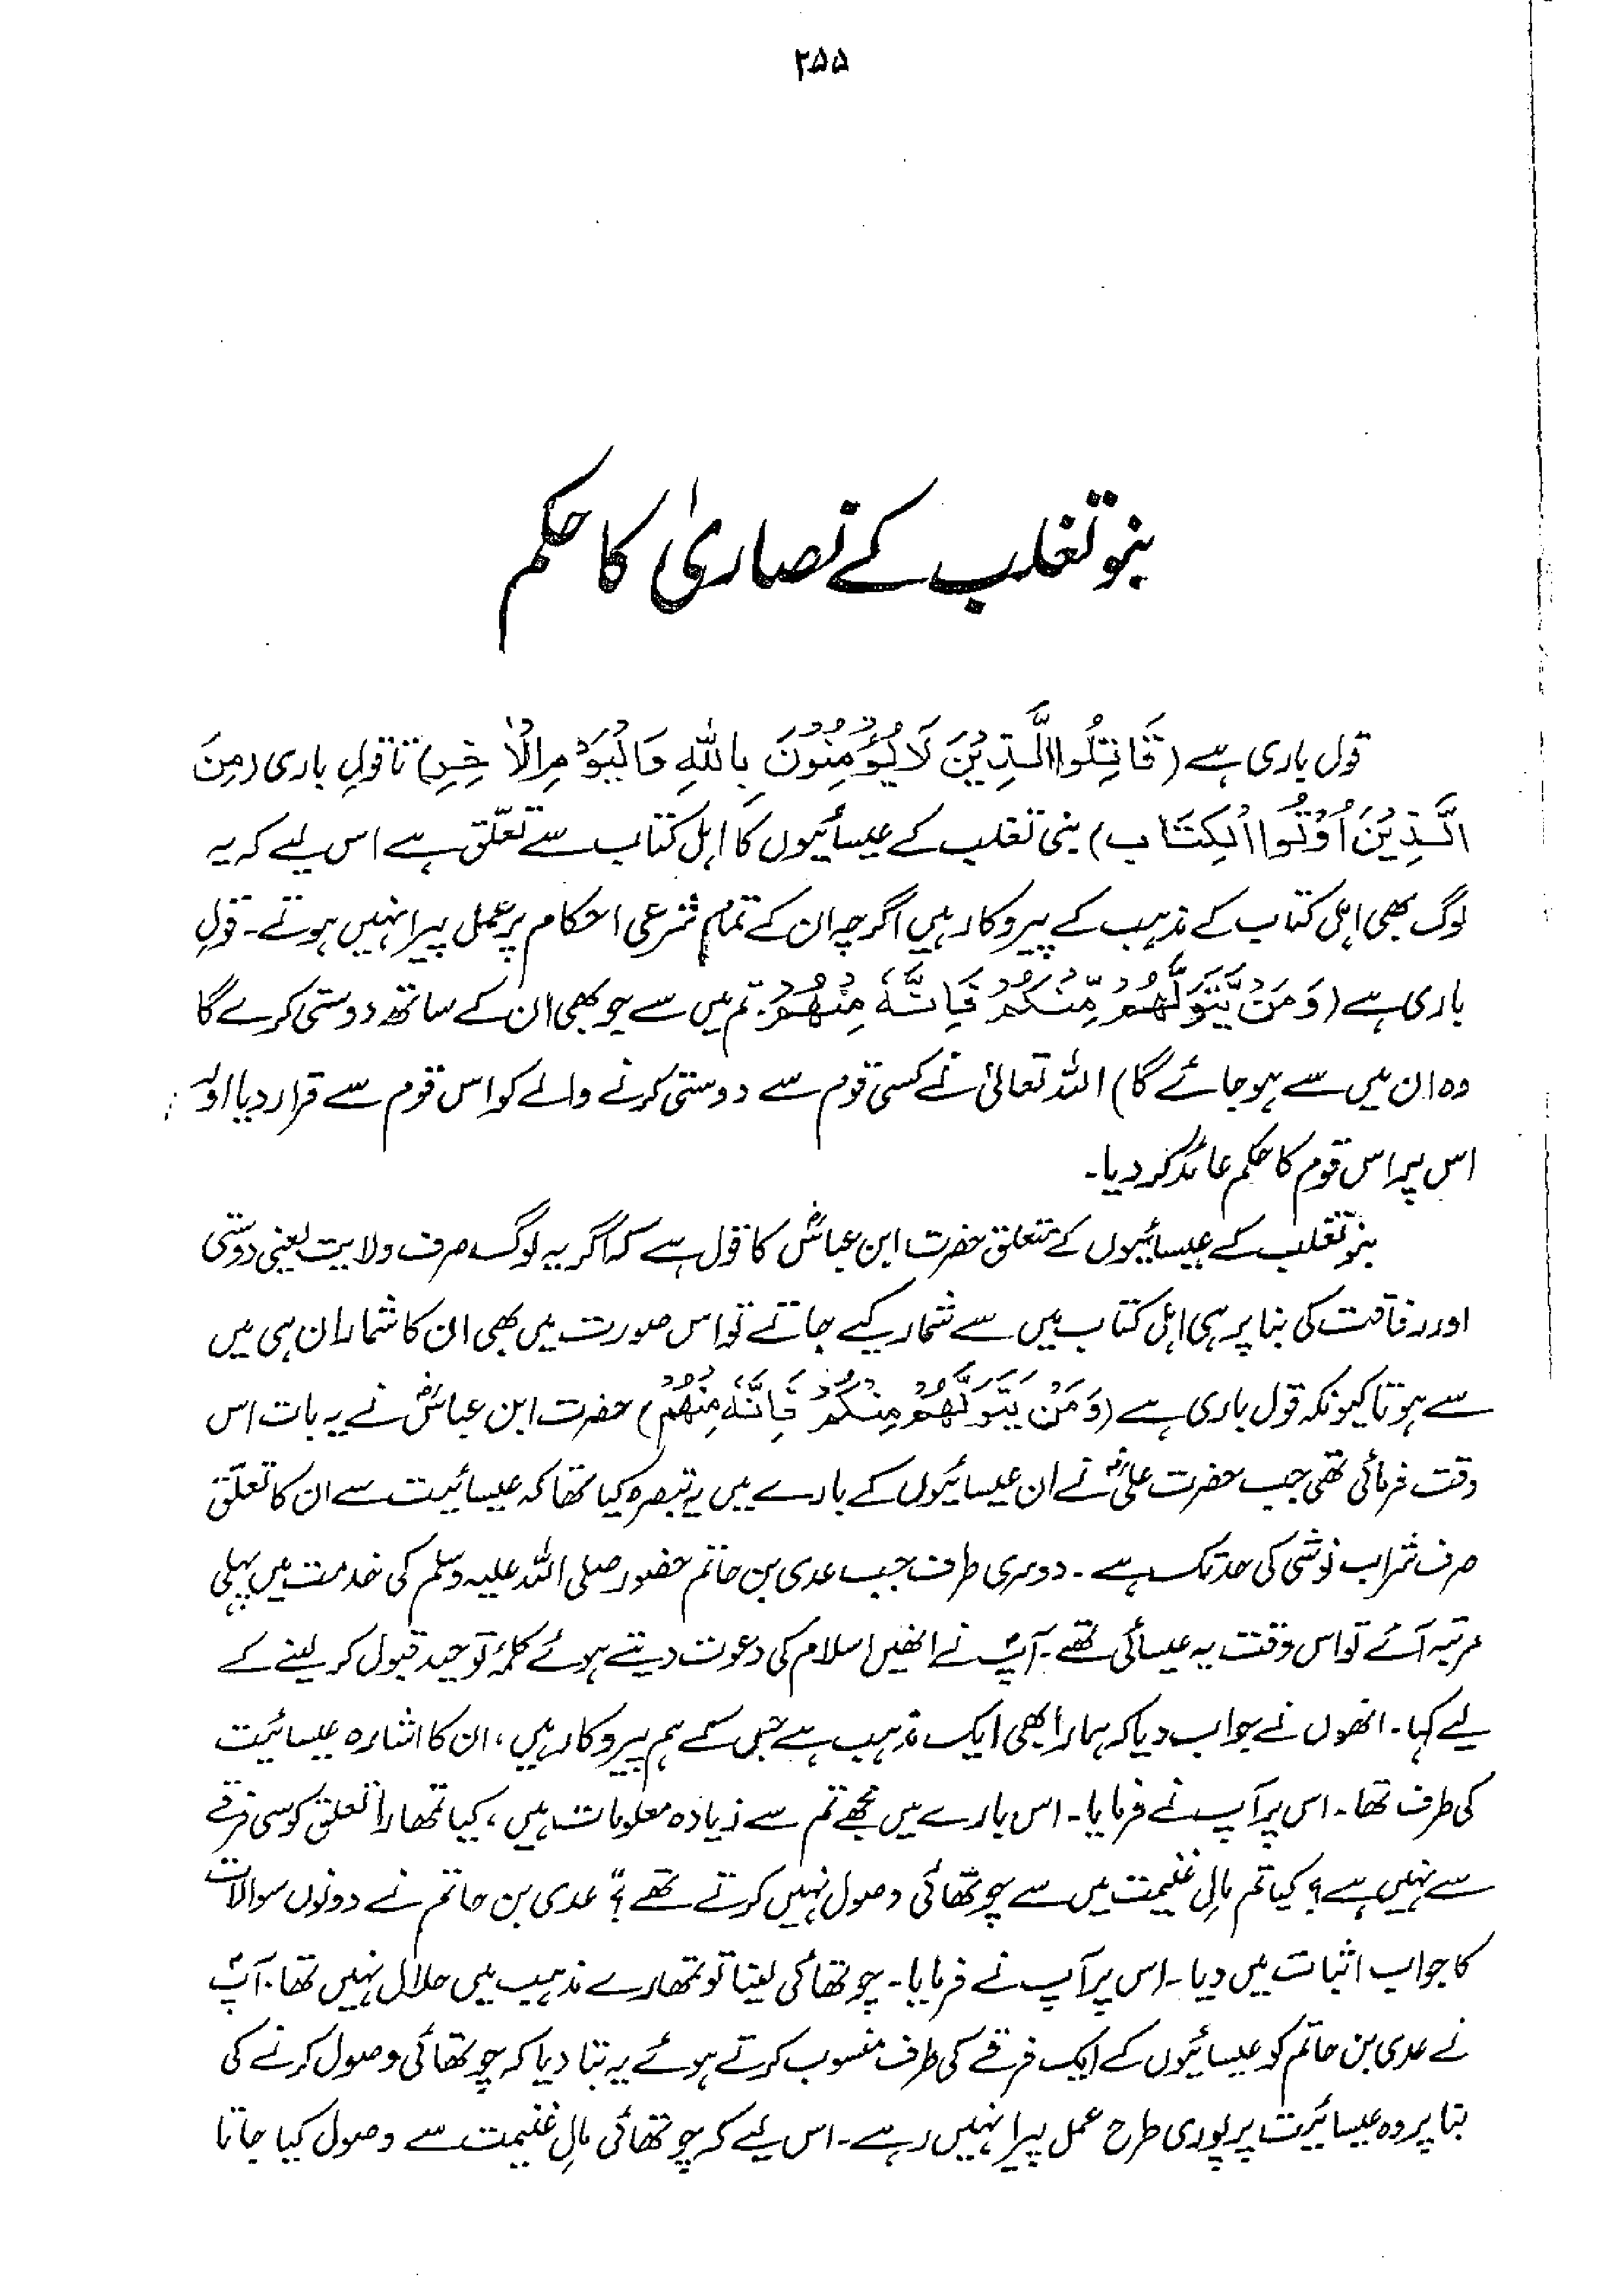 ۲۵۵
بنو تغلب کے نصاریٰ کا حکم
قول باری ہے (قَاتِلُوا الَّذِیْنَ لَا یُؤْمِنُوْنَ بِاللّٰہِ وَلَا بِالْیَوْمِ الْاٰخِرِ) تا قولِ باری (مِنَ
الَّذِیْنَ اُوْتُوا الْکِتَاب) بنی تغلب کے عیسائیوں کا اہل کتاب سے تعلّق ہے اس لیے کہ یہ
لوگ بھی اہل کتاب کے مذہب کے پیروکار ہیں اگرچہ ان کے تمام شرعی احکام پر عمل پیرا نہیں ہوتے۔ قولِ
باری ہے (وَمَنْ یَّتَوَلَّھُمْ مِّنْکُمْ فَاِنَّہٗ مِنْھُمْ۔ تم میں سے جو بھی ان کے ساتھ دوستی کرے گا
وہ ان میں سے ہو جائے گا) اللہ تعالیٰ نے کسی قوم سے دوستی کرنے والے کو اس قوم سے قرار دیا اور
اس پر اس قوم کا حکم عائد کر دیا۔
بنو تغلب کے عیسائیوں کے متعلق حضرت ابن عباسؓ کا قول ہے کہ اگر یہ لوگ صرف ولایت یعنی دوستی
اور رفاقت کی بنا پر ہی اہل کتاب میں سے شمار کیے جاتے تو اس صورت میں بھی ان کا شمار ان ہی میں
سے ہوتا کیونکہ قول باری ہے (وَمَنْ یَتَوَلَّھُمْ مِنْکُمْ فَاِنَّہٗ مِنْھُمْ) حضرت ابن عباسؓ نے یہ بات اس
وقت فرمائی تھی جب حضرت علیؓ نے ان عیسائیوں کے بارے میں یہ تبصرہ کیا تھا کہ عیسائیت سے ان کا تعلّق
صرف شراب نوشی کی حد تک ہے۔ دوسری طرف جب عدی بن حاتم حضور صلی اللہ علیہ وسلم کی خدمت میں پہلی
مرتبہ آئے تو اس وقت یہ عیسائی تھے۔ آپؐ نے انھیں اسلام کی دعوت دیتے ہوئے کلمۂ توحید قبول کر لینے کے
لیے کہا۔ انھوں نے جواب دیا کہ ہمارا بھی ایک مذہب ہے جس کے ہم پیروکار ہیں، ان کا اشارہ عیسائیت
کی طرف تھا۔ اس پر آپ نے فرمایا۔ اس بارے میں مجھے تم سے زیادہ معلومات ہیں، کیا تمھارا تعلق کوسی فرقے
سے نہیں ہے؟ کیا تم مالِ غنیمت میں سے چوتھائی وصول نہیں کرتے تھے؟" عدی بن حاتم نے دونوں سوالات
کا جواب اثبات میں دیا۔ اس پر آپ نے فرمایا۔ چوتھائی لینا تو تمھارے مذہب میں حلال نہیں تھا۔ آپؐ
نے عدی بن حاتم کو عیسائیوں کے ایک فرقے کی طرف منسوب کرتے ہوئے یہ بتا دیا کہ چوتھائی وصول کرنے کی
بنا پر وہ عیسائیت پر پوری طرح عمل پیرا نہیں رہے۔ اس لیے کہ چوتھائی مالِ غنیمت سے وصول کیا جاتا